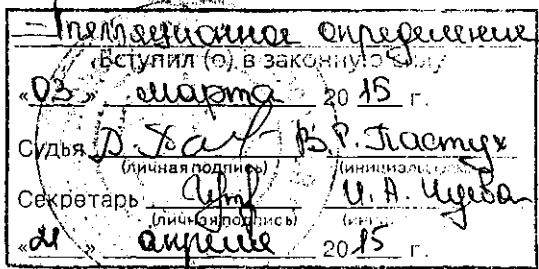 Апелляционное определение
Вступил (о) в законную силу
«03» марта 20 15 г.
Судья В.Р. Пастух
(личная подпись) (инициалы,
Секретарь И.А.
(личная подпись) (иниц
«21» апреля 20 15 г.